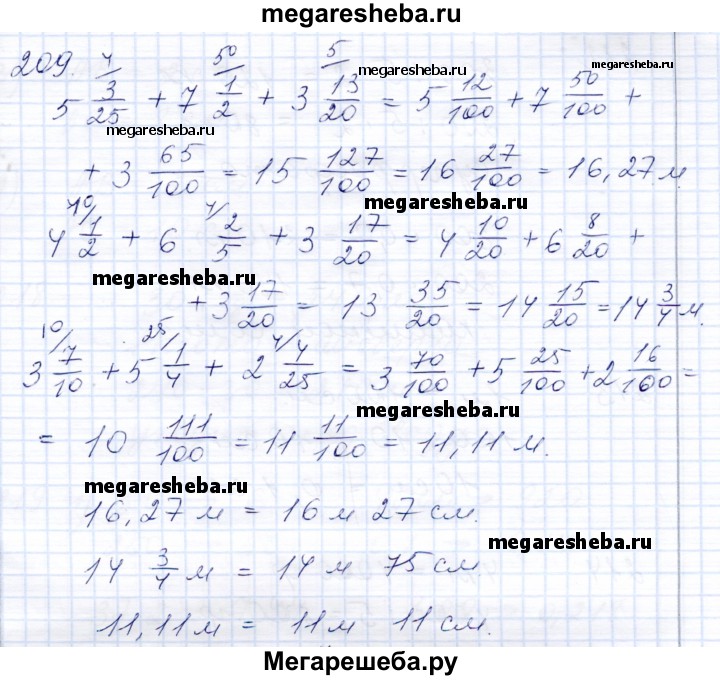 megaresheba.ru
209. 5 3/25 (4/) + 7 1/2 (50/) + 3 13/20 (5/) = 5 12/100 + 7 50/100 +
megaresheba.ru
megaresheba.ru
megaresheba.ru
+ 3 65/100 = 15 127/100 = 16 27/100 = 16,27 м.
megaresheba.ru
4 1/2 (10/) + 6 2/5 (4/) + 3 17/20 = 4 10/20 + 6 8/20 +
megaresheba.ru
+ 3 17/20 = 13 35/20 = 14 15/20 = 14 3/4 м.
3 7/10 (10/) + 5 1/4 (25/) + 2 4/25 (4/) = 3 70/100 + 5 25/100 + 2 16/100 =
megaresheba.ru
= 10 111/100 = 11 11/100 = 11,11 м.
megaresheba.ru
16,27 м = 16 м 27 см.
megaresheba.ru
14 3/4 м = 14 м 75 см
11,11 м = 11 м 11 см.
Мегарешеба.ру